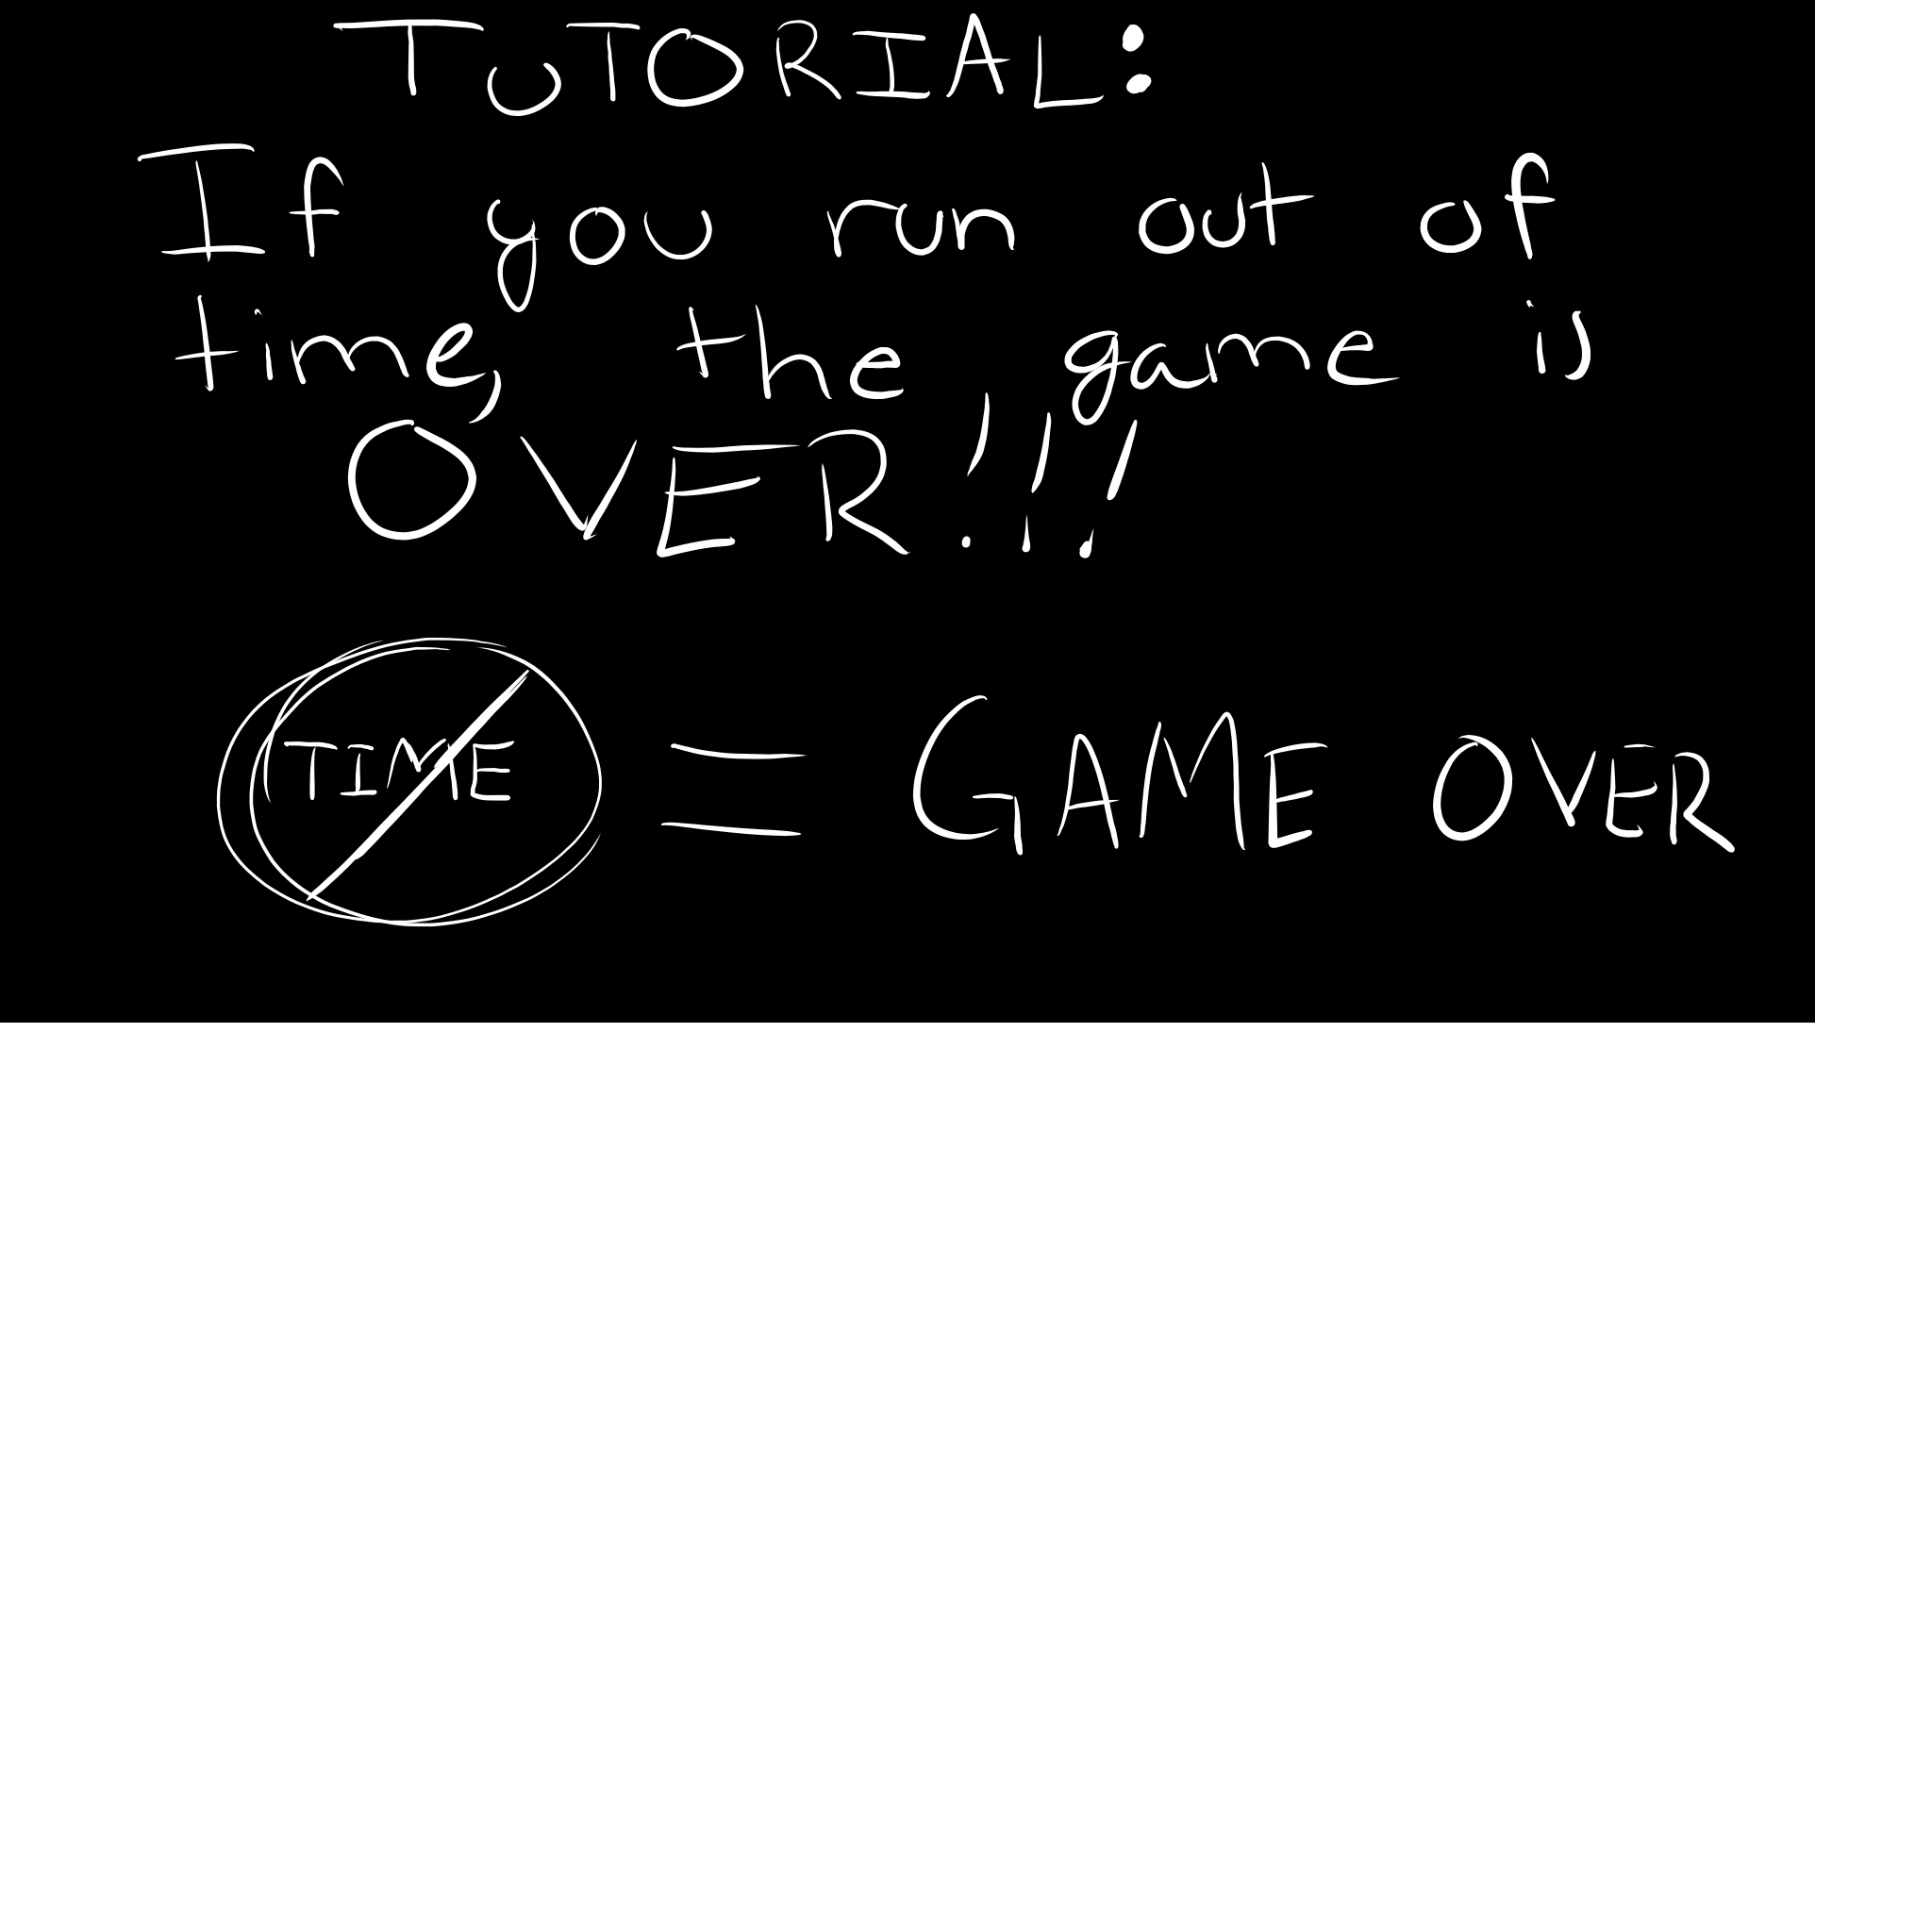 TUTORIAL:
If you run out of
time, the game is
OVER!!!
TIME = GAME OVER